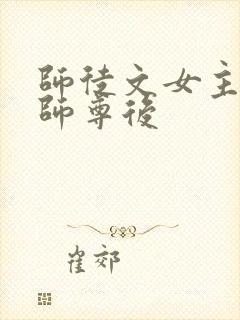 師徒文女主
師尊後
崔郊